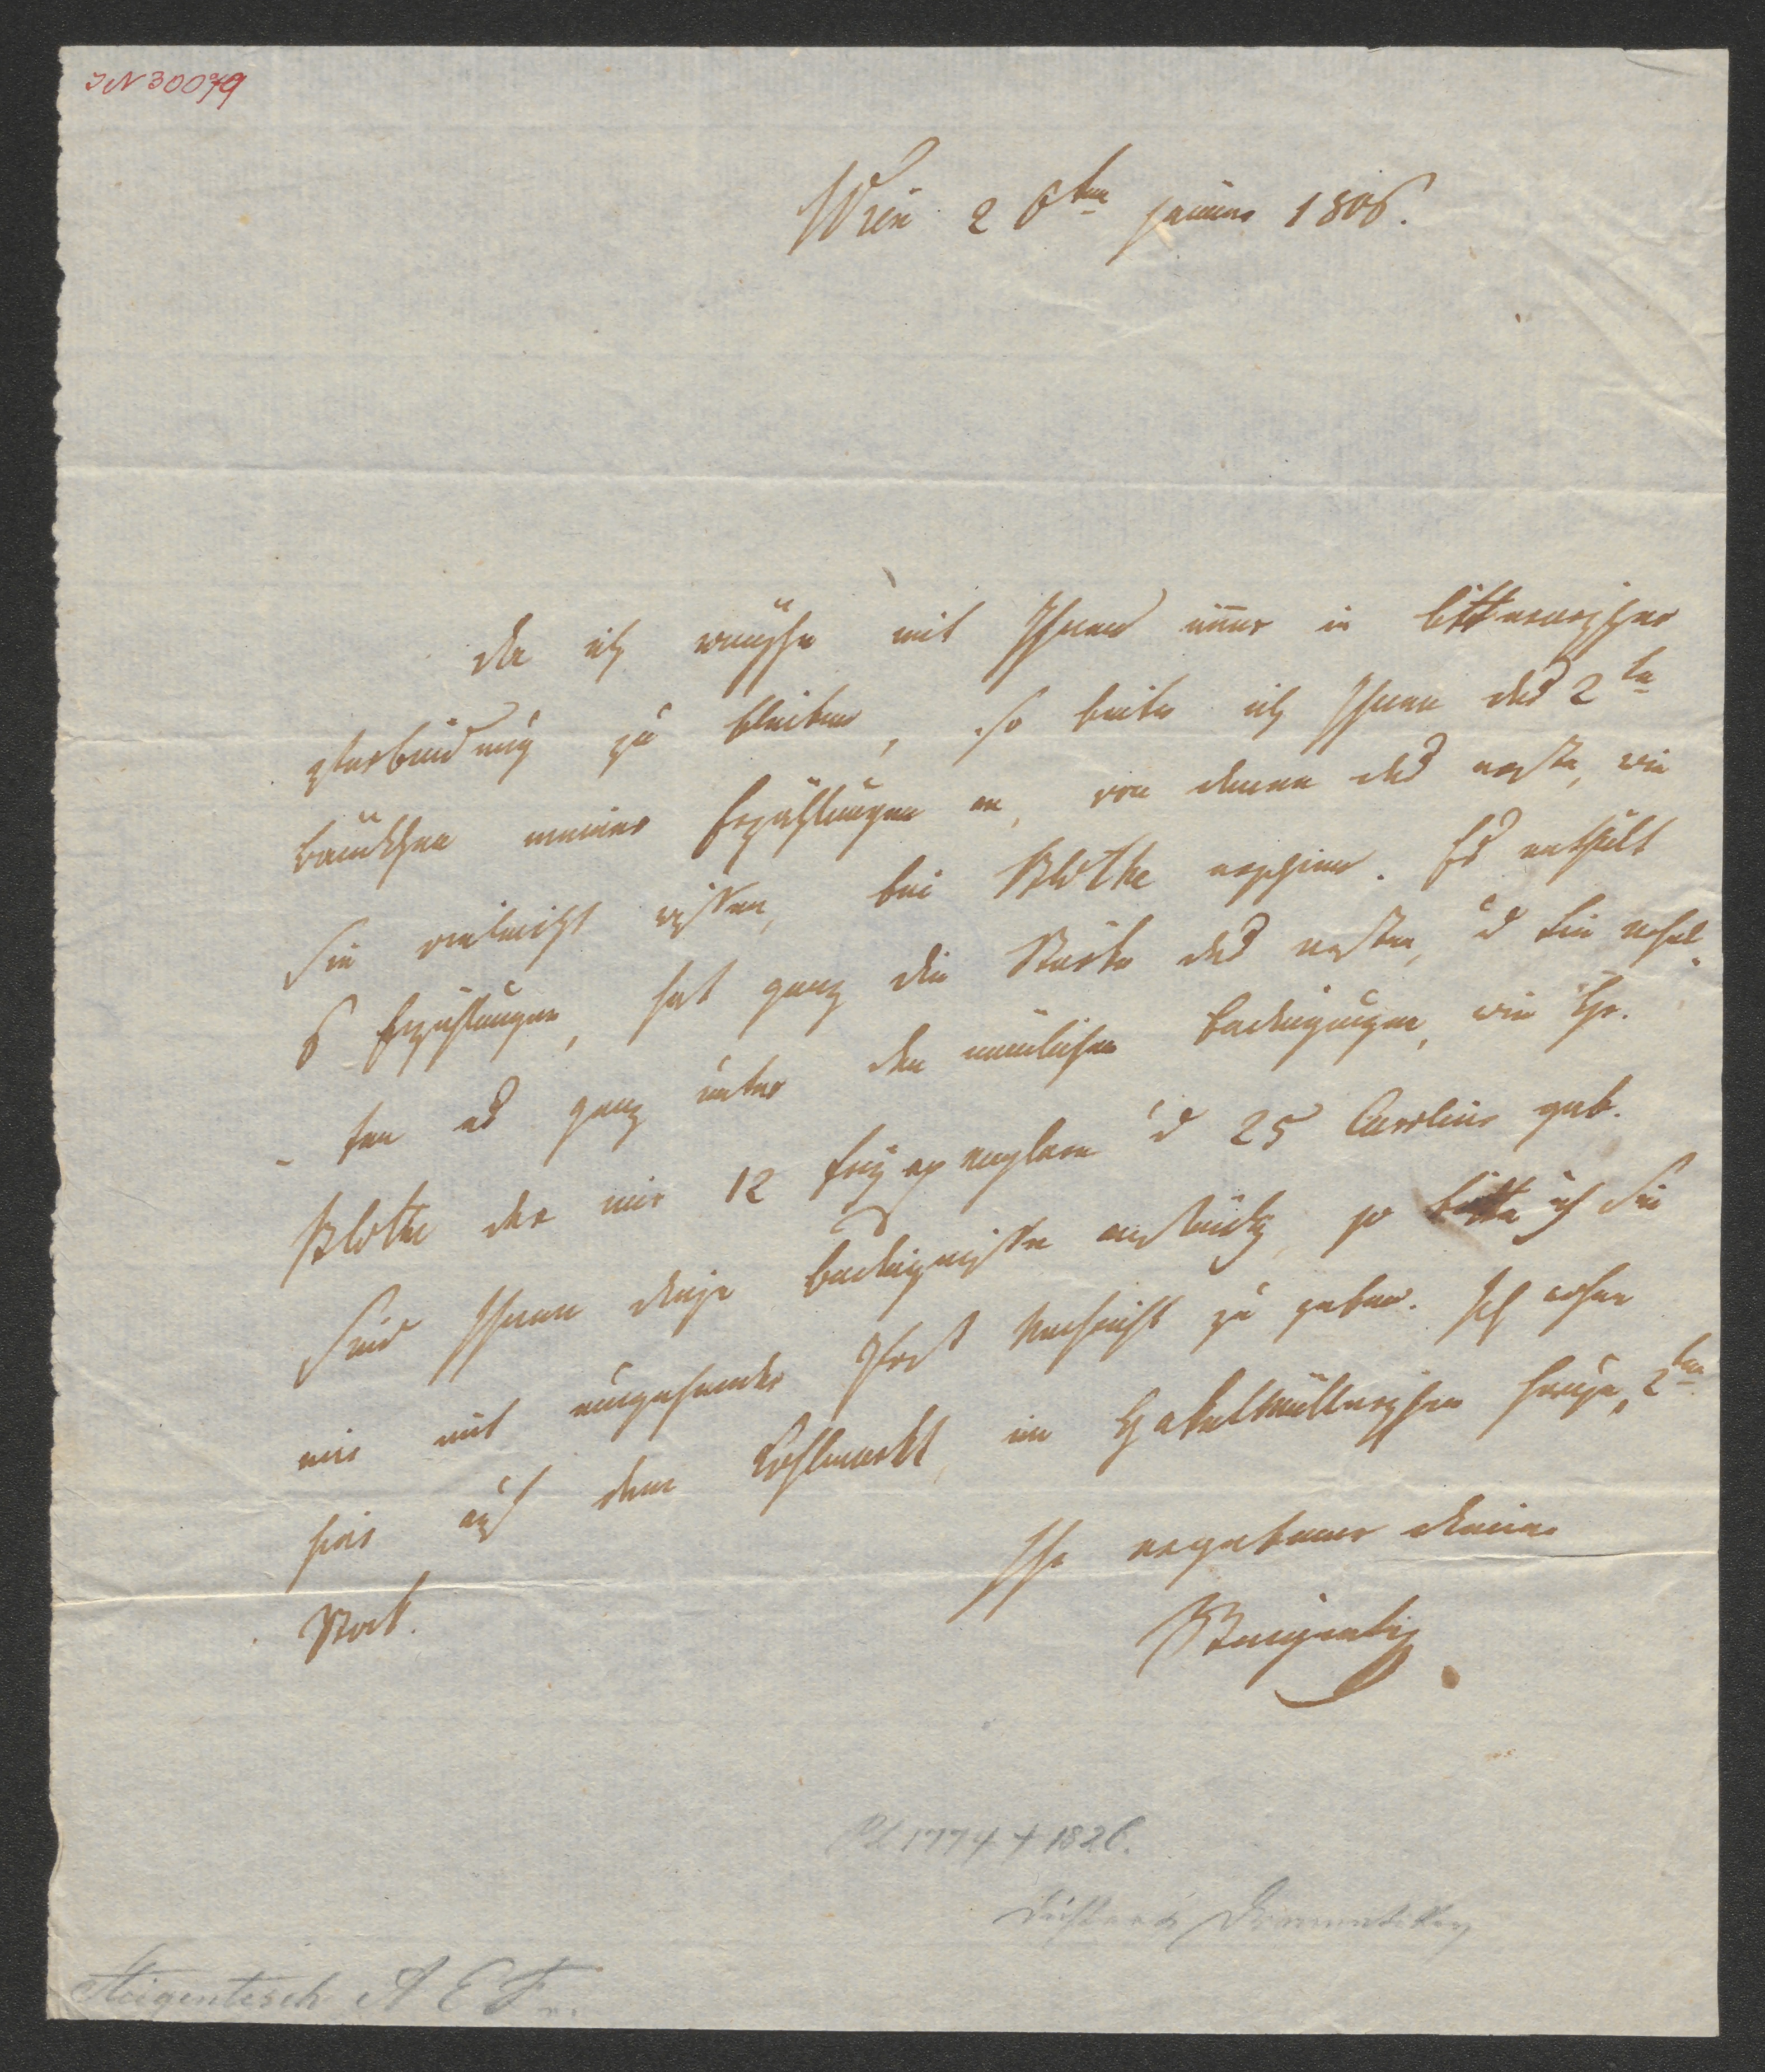 IN 30079
Wien 26ten Januar 1806.
Da ich wünsche mit Ihnen immer in litterarischer
Verbindung zu bleiben, so biete ich Ihnen das 2te
Bändchen meiner Erzählungen an, von denen das erste, wie
Sie vieleicht wissen, bei Blothe erschien. Es enthält
6 Erzählungen, hat ganz die Stärke des ersten, u Sie erhal-
- ten es ganz unter den nämlichen Bedingungen, wie Hr.
Blothe der mir 12 Freyexemplare u 25 Carolins gab.
Sind Ihnen diese Bedingnisse anständig, so bitte ich Sie
mir mit umgehender Post Nachricht zu geben. Ich wohne
hier auf dem Kohlmarkt, im Hakelmüllerischen Hause, 2ten
Stock.
Ihr ergebener Diener
Steigentesch
1774 † 1826.
Dichter u Dramatiker
Steigentesch A E F.